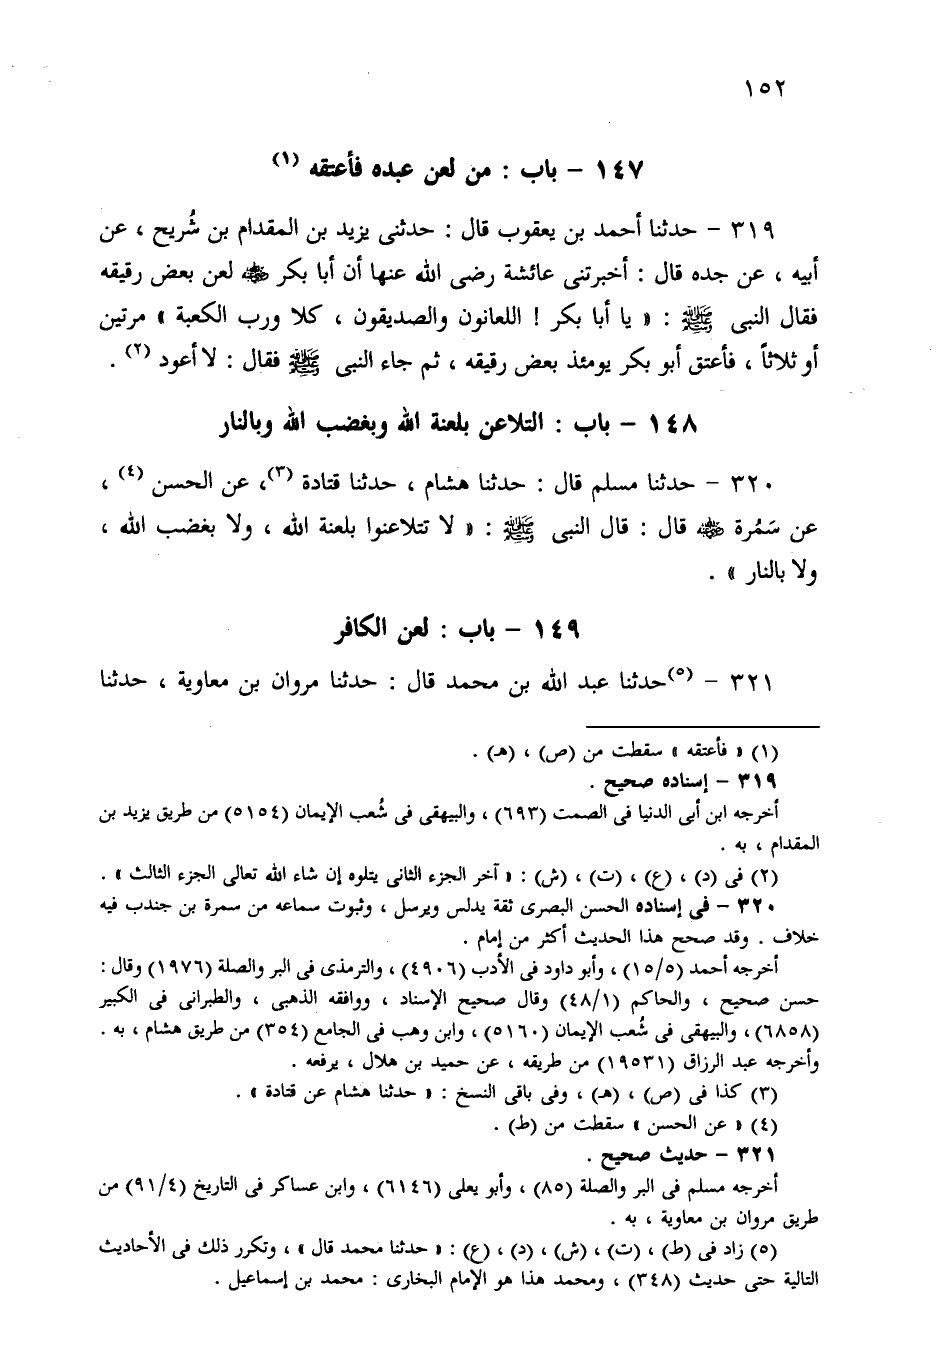 ١٥٢
١٤٧ – باب : من لعن عبده فأعتقه (١)
٣١٩ – حدثنا أحمد بن يعقوب قال : حدثنى يزيد بن المقدام بن شُريح ، عن
أبيه ، عن جده قال : أخبرتنى عائشة رضى الله عنها أن أبا بكر رضي الله عنه لعن بعض رقيقه
فقال النبى ﷺ : « يا أبا بكر ! اللعانون والصديقون ، كلا ورب الكعبة » مرتين
أو ثلاثاً ، فأعتق أبو بكر يومئذ بعض رقيقه ، ثم جاء النبى ﷺ فقال : لا أعود (٢) .
١٤٨ – باب : التلاعن بلعنة الله وبغضب الله وبالنار
٣٢٠ – حدثنا مسلم قال : حدثنا هشام ، حدثنا قتادة (٣)، عن الحسن (٤) ،
عن سَمُرة رضي الله عنه قال : قال النبى ﷺ : « لا تتلاعنوا بلعنة الله ، ولا بغضب الله ،
ولا بالنار » .
١٤٩ – باب : لعن الكافر
٣٢١ – (٥)حدثنا عبد الله بن محمد قال : حدثنا مروان بن معاوية ، حدثنا
(١) « فأعتقه » سقطت من (ص) ، (هـ) .
٣١٩ – إسناده صحيح .
أخرجه ابن أبى الدنيا فى الصمت (٦٩٣) ، والبيهقى فى شُعب الإيمان (٥١٥٤) من طريق يزيد بن
المقدام ، به .
(٢) فى (د) ، (ع) ، (ت) ، (ش) : « آخر الجزء الثانى يتلوه إن شاء الله تعالى الجزء الثالث » .
٣٢٠ – فى إسناده الحسن البصرى ثقة يدلس ويرسل ، وثبوت سماعه من سمرة بن جندب فيه
خلاف . وقد صحح هذا الحديث أكثر من إمام .
أخرجه أحمد (١٥/٥) ، وأبو داود فى الأدب (٤٩٠٦) ، والترمذى فى البر والصلة (١٩٧٦) وقال :
حسن صحيح ، والحاكم (٤٨/١) وقال صحيح الإسناد ، ووافقه الذهبى ، والطبرانى فى الكبير
(٦٨٥٨) ، والبيهقى فى شُعب الإيمان (٥١٦٠) ، وابن وهب فى الجامع (٣٥٤) من طريق هشام ، به .
وأخرجه عبد الرزاق (١٩٥٣١) من طريقه ، عن حميد بن هلال ، يرفعه .
(٣) كذا فى (ص) ، (هـ) ، وفى باقى النسخ : « حدثنا هشام عن قتادة » .
(٤) « عن الحسن » سقطت من (ط) .
٣٢١ – حديث صحيح .
أخرجه مسلم فى البر والصلة (٨٥) ، وأبو يعلى (٦١٤٦) ، وابن عساكر فى التاريخ (٩١/٤) من
طريق مروان بن معاوية ، به .
(٥) زاد فى (ط) ، (ت) ، (ش) ، (د) ، (ع) : « حدثنا محمد قال » ، وتكرر ذلك فى الأحاديث
التالية حتى حديث (٣٤٨) ، ومحمد هذا هو الإمام البخارى : محمد بن إسماعيل .